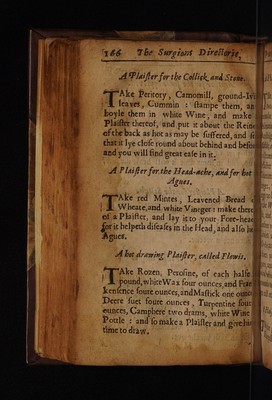 166 The Surgions Directorie,
A Plaister for the Collick, and Stone.
TAke Peritery, Camomill, ground-Ivi
leaves, Cummin : stampe them, an
boyle them in white Wine, and make
Plaister thereof, and put it about the Reine
of the back as hot as may be suffered, and
that it lye close round about behind and befo
and you will find great ease in it.
A Plaister for the Head-ache, and for hot
Agues.
TAke red Mintes, Leavened Bread
Wheate, and white Vineger : make there
of a Plaister, and lay it to your Fore-head
for it helpeth diseases in the Head, and also
Agues.
A hot drawing Plaister, called Flowis.
TAke Rozen, Perosine, of each halfe
pound, white Wax four ounces, and Fran
kensence foure ounces, and Mastick one ounce
Deere suet foure ounces, Turpentine foure
ounces, Camphere two drams, white Wine
Pottle : and so make a Plaister and give him
time to draw.